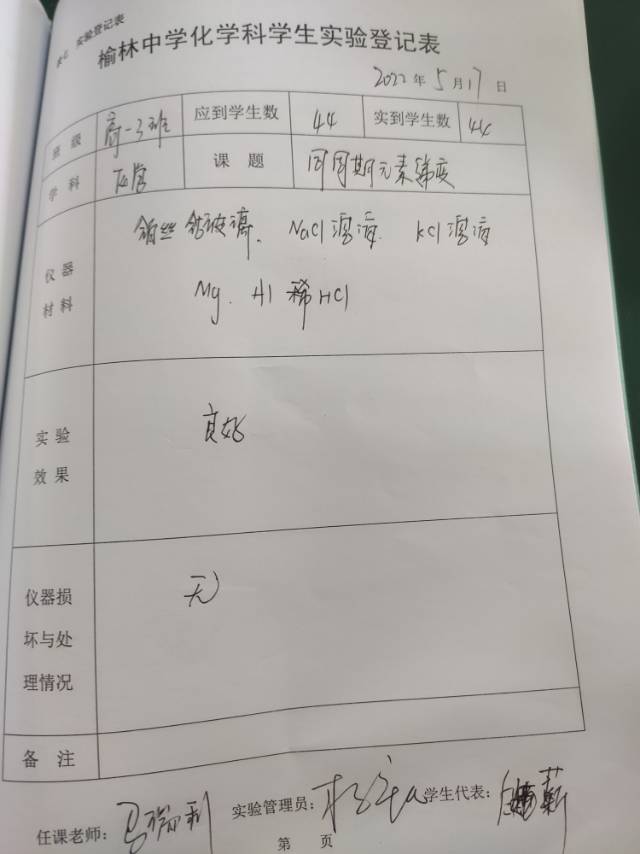 表七 实验登记表
榆林中学化学科学生实验登记表
2022年5月17日
班级 高一3班 应到学生数 44 实到学生数 44
学科 化学 课题 同周期元素递变
仪器材料
铂丝 钴玻璃、NaCl溶液 KCl溶液
Mg、Al 稀HCl
实验效果
良好
仪器损坏与处理情况
无
备注
任课老师：马瑞利 实验管理员： 学生代表：
第 页